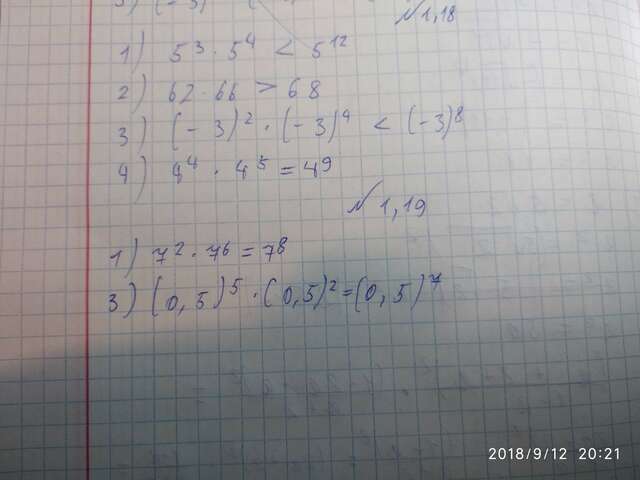 № 1,18
1) 5³ · 5⁴ < 5¹²
2) 62 · 66 > 68
3) (-3)² · (-3)⁴ < (-3)⁸
4) 4⁴ · 4⁵ = 4⁹
№ 1,19
1) 7² · 7⁶ = 7⁸
3) (0,5)⁵ · (0,5)² = (0,5)⁷
2018/9/12 20:21